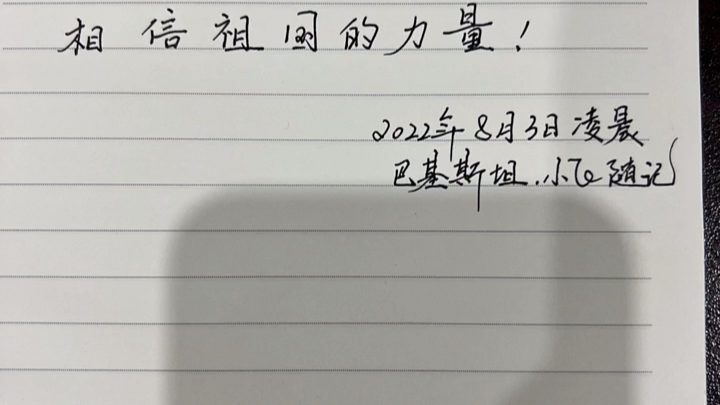 相信祖国的力量!
2022年8月3日凌晨
巴基斯坦.小飞随记